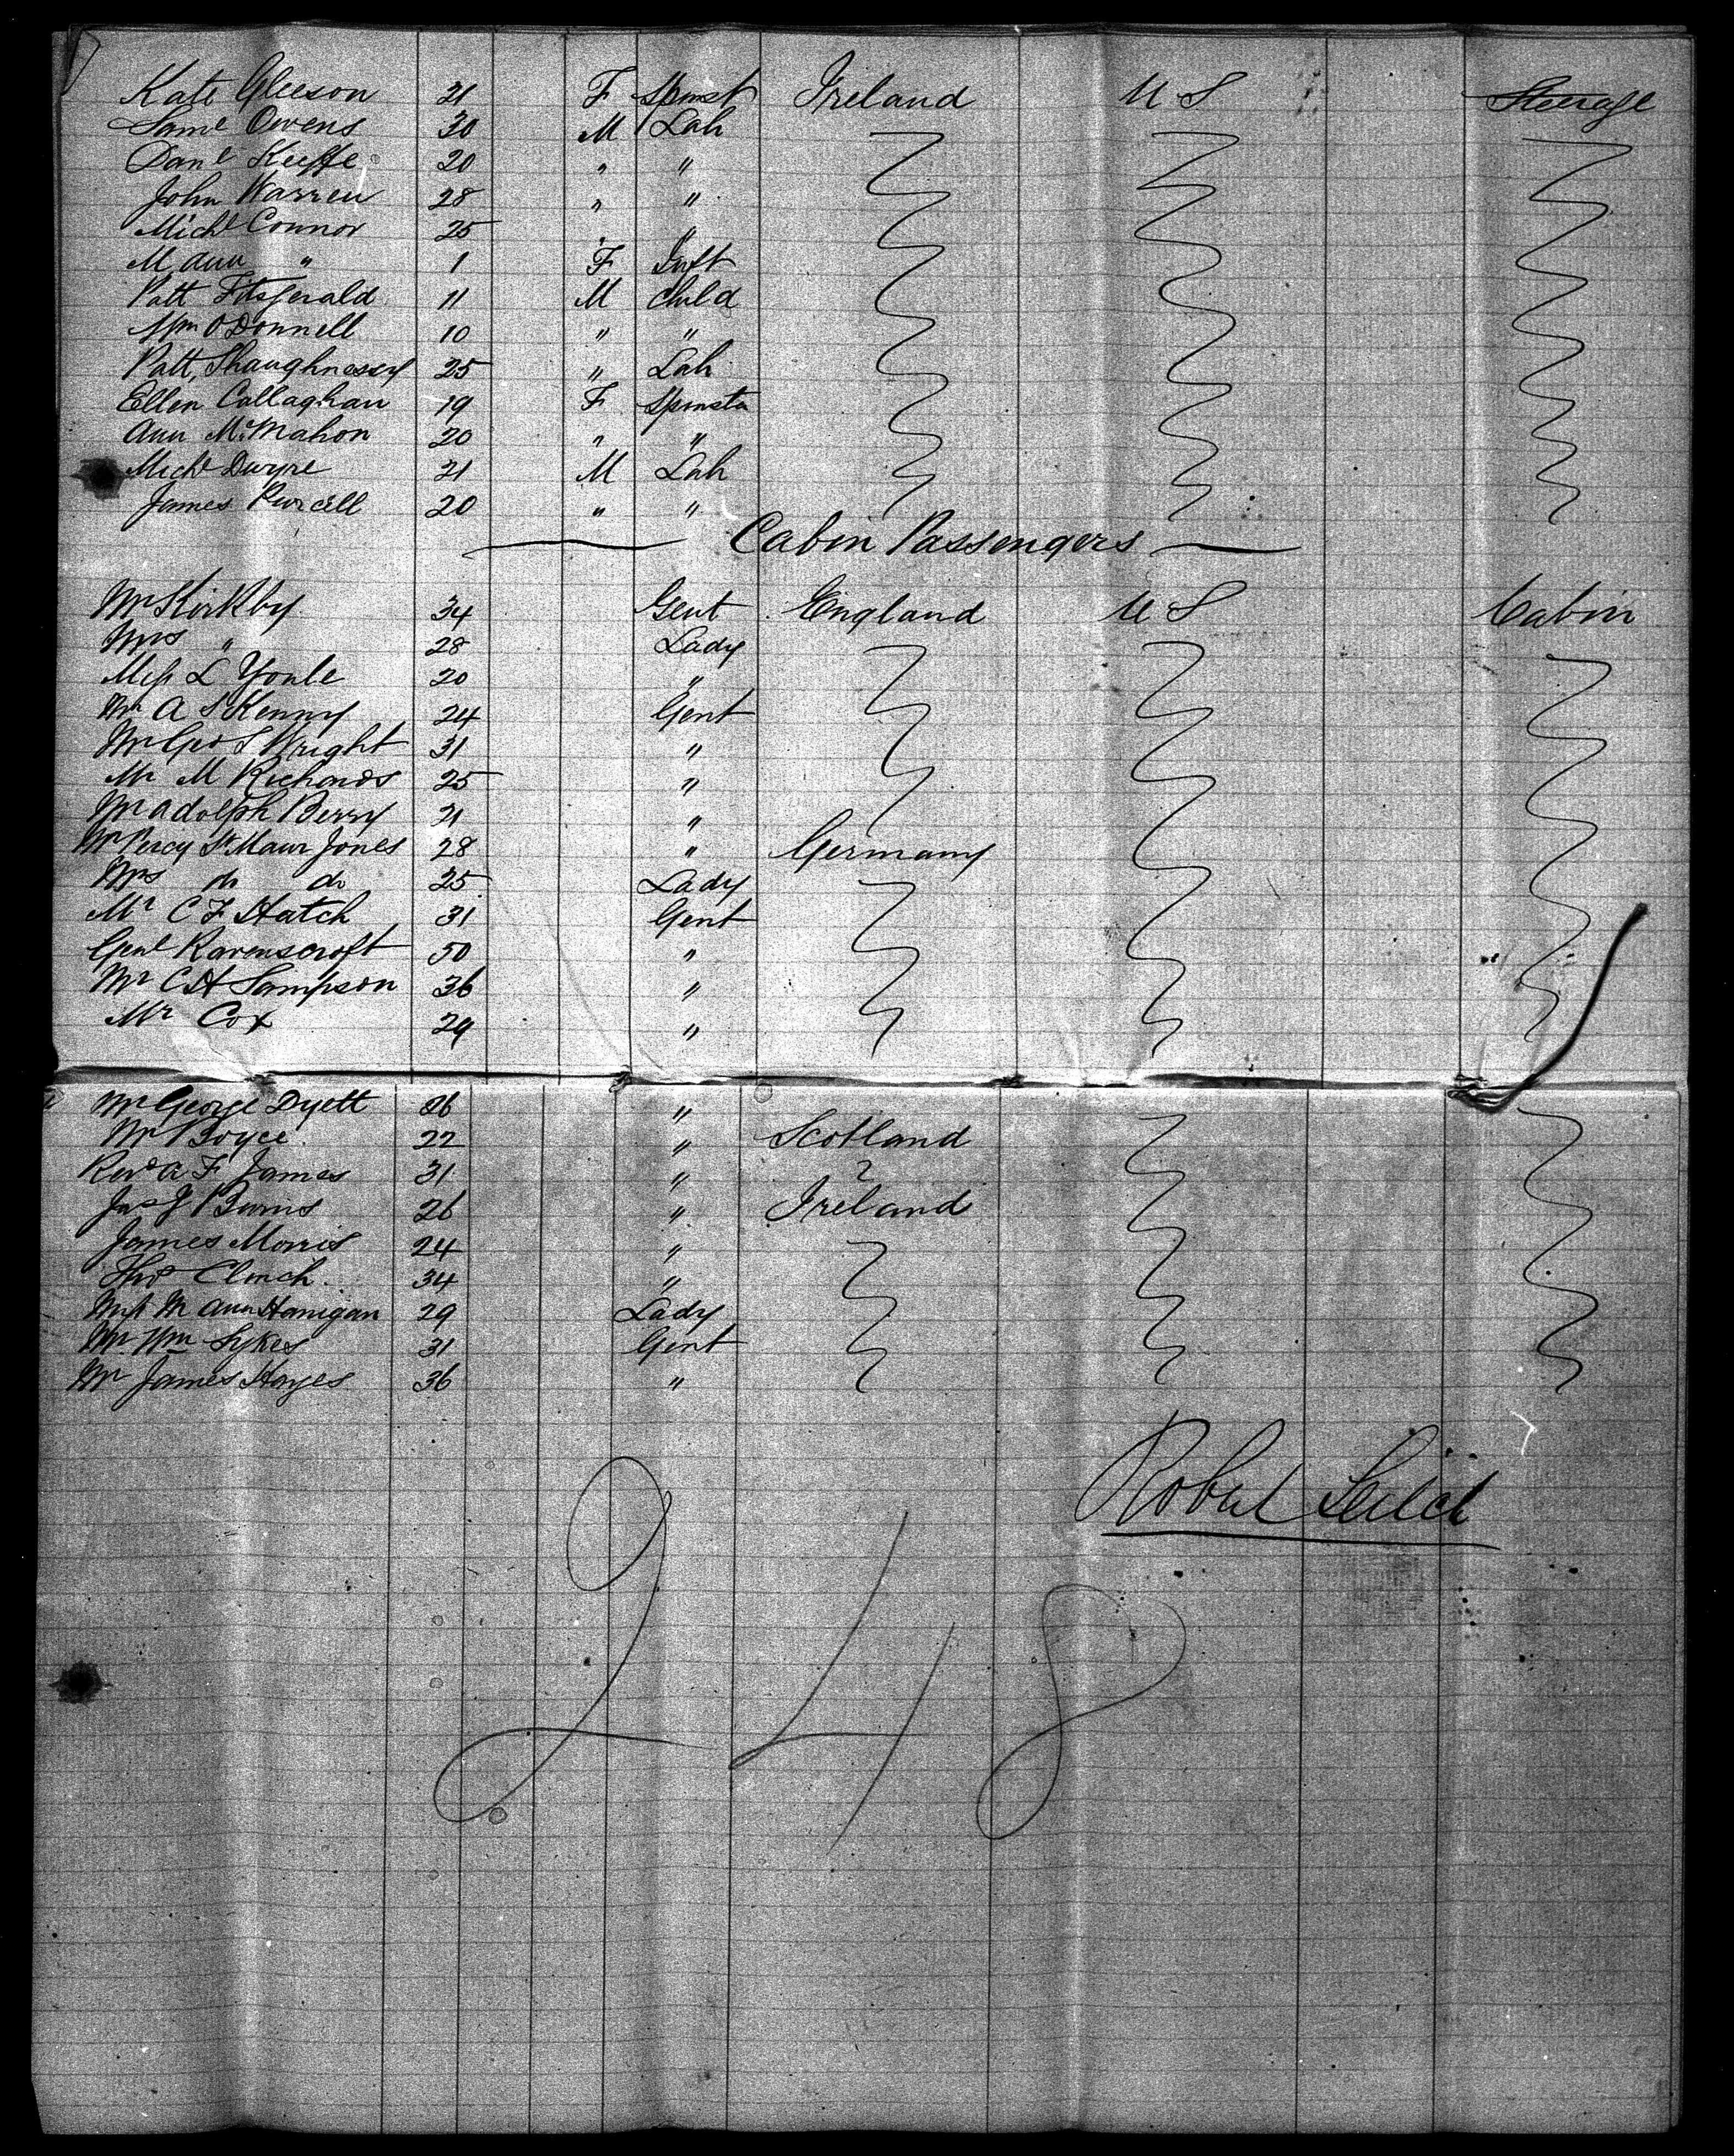 Kate Gleeson 21 F Spinst Ireland U S Steerage
Saml Owens 30 M Lab
Danl Keeffe 20 " "
John Warren 28 " "
Michl Connor 25 " "
M Ann " 1 F Inft
Patt Fitzgerald 11 M Child
Wm O Donnell 10 " "
Patt Shaughnessy 25 " Lab
Ellen Callaghan 19 F Spinsta
Ann McMahon 20 " "
Michl Dwyre 21 M Lab
James Purcell 20 " "
Cabin Passengers
Mr Kirkby 34 Gent England U S Cabin
Mrs " 28 Lady
Miss L Youle 20 "
Mr A S Kenny 24 Gent
Mr Geo S Wright 31 "
Mr M Richards 25 "
Mr Adolph Berry 21 "
Mr Percy St Maur Jones 28 " Germany
Mrs do do 25 Lady
Mr C F Hatch 31 Gent
Genl Ravenscroft 50 "
Mr C H Sampson 36 "
Mr Cox 29 "
Mr George Dyett 26 "
Mr Boyce 22 " Scotland
Revd A F James 31 "
Jas J Burns 26 " Ireland
James Morris 24 "
Thos Clinch 34 "
Miss M Ann Hanigan 29 Lady
Mr Wm Sykes 31 Gent
Mr James Hayes 36 "
Robert Leitch
248